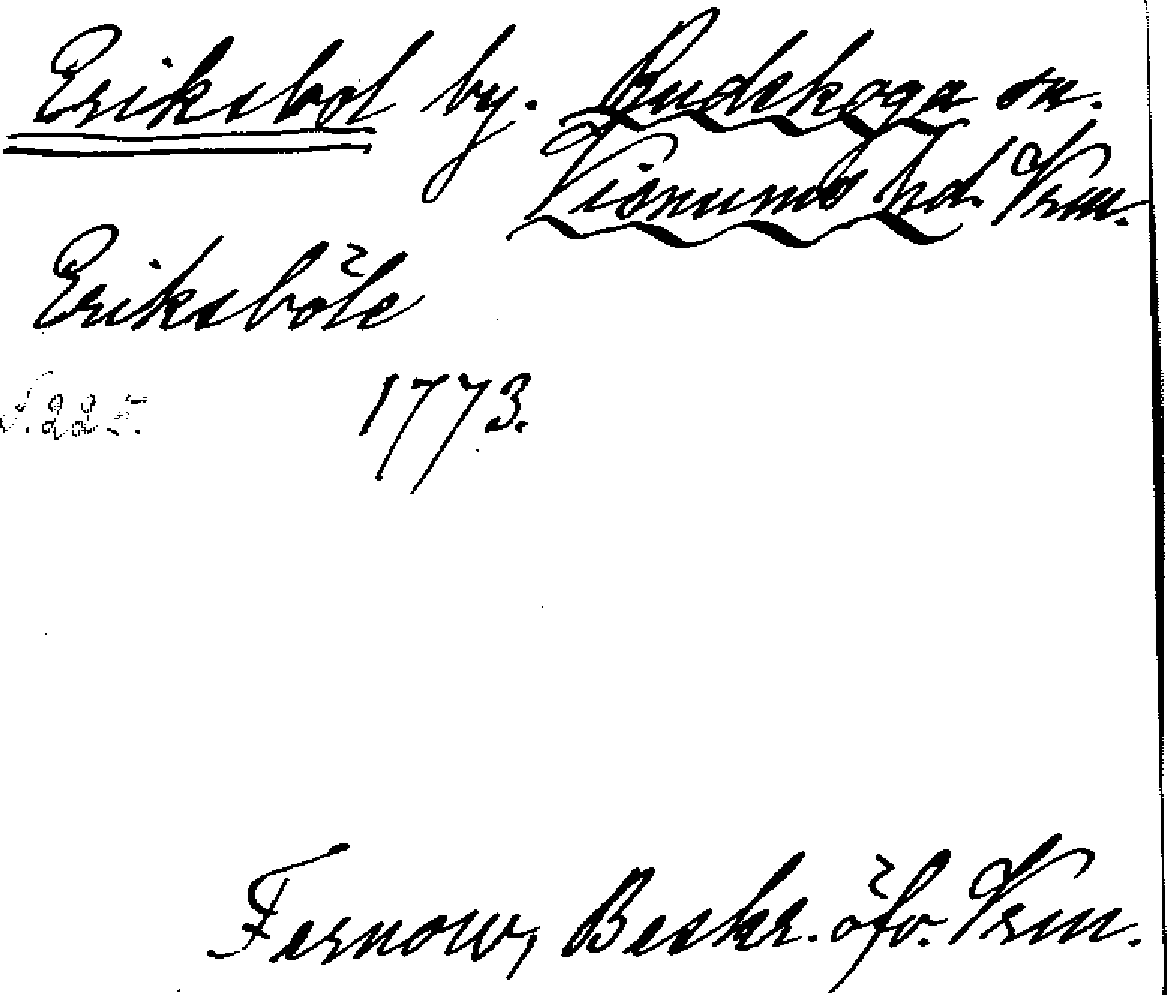 Eriksbol by. Rudskoga sn.
Visnums hd. Vrm.
Eriksböle
S. 225. 1773.
Fernow, Beskr. öfv. Vrm.